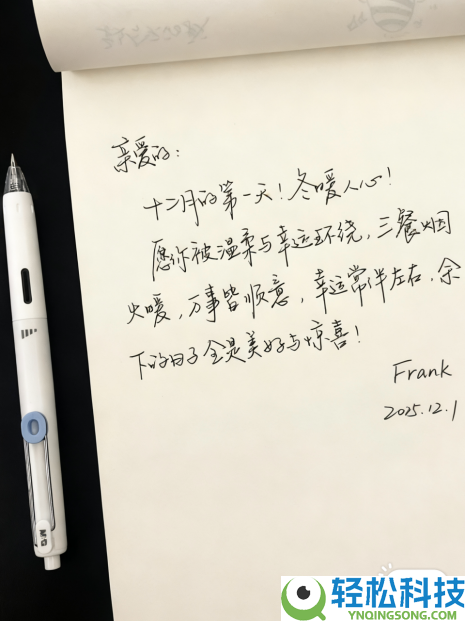 亲爱的:
十二月的第一天!冬暖人心!
愿你被温柔与幸运环绕,三餐烟
火暖,万事皆顺意,幸运常伴左右,余
下的日子全是美好与惊喜!
Frank
2025.12.1
M&G
轻松科技
YNQINGSONG.COM